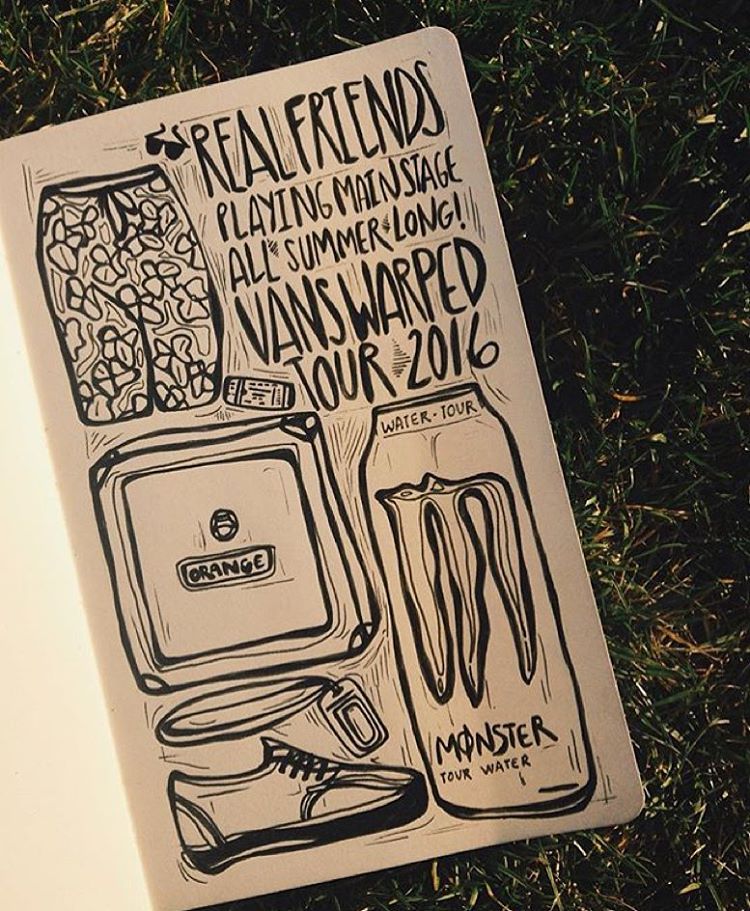 REAL FRIENDS
PLAYING MAIN STAGE
ALL SUMMER LONG!
VANS WARPED
TOUR 2016
WATER-TOUR
ORANGE
MØNSTER
TOUR WATER